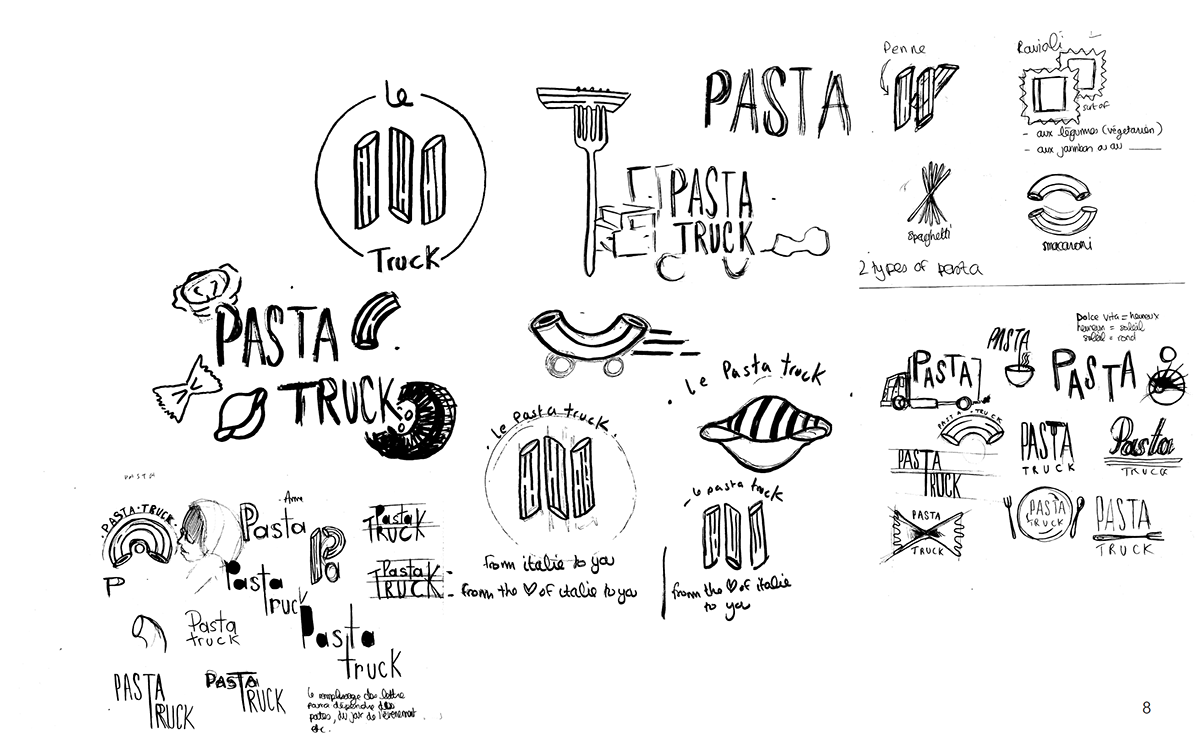 Le
Truck
PASTA
PASTA
TRUCK
Penne
Ravioli
- aux légumes (végetarien)
- aux jambon ou au
spaghetti
macaroni
2 types of pasta
PASTA
TRUCK
le pasta truck
from italie to you
from the ♡ of italie to you
Le Pasta truck
le pasta truck
from the ♡ of italie
to you
Dolce vita = heureux
heureux = soleil
soleil = rond
PASTA
PASTA
PASTA
PASTA TRUCK
PASTA
TRUCK
PASTA
TRUCK
Pasta
TRUCK
PASTA
TRUCK
PASTA
TRUCK
PASTA
TRUCK
PASTA
PASTA · TRUCK
P
Pasta
Pasta
truck
Pa
Pasta
TRUCK
Pasta
TRUCK
Pasta
truck
Pasta
truck
PASTA
TRUCK
PASTA
TRUCK
Le remplissage des lettre
pourra dépendre des
pates, du jour de l'évènement
etc.
8